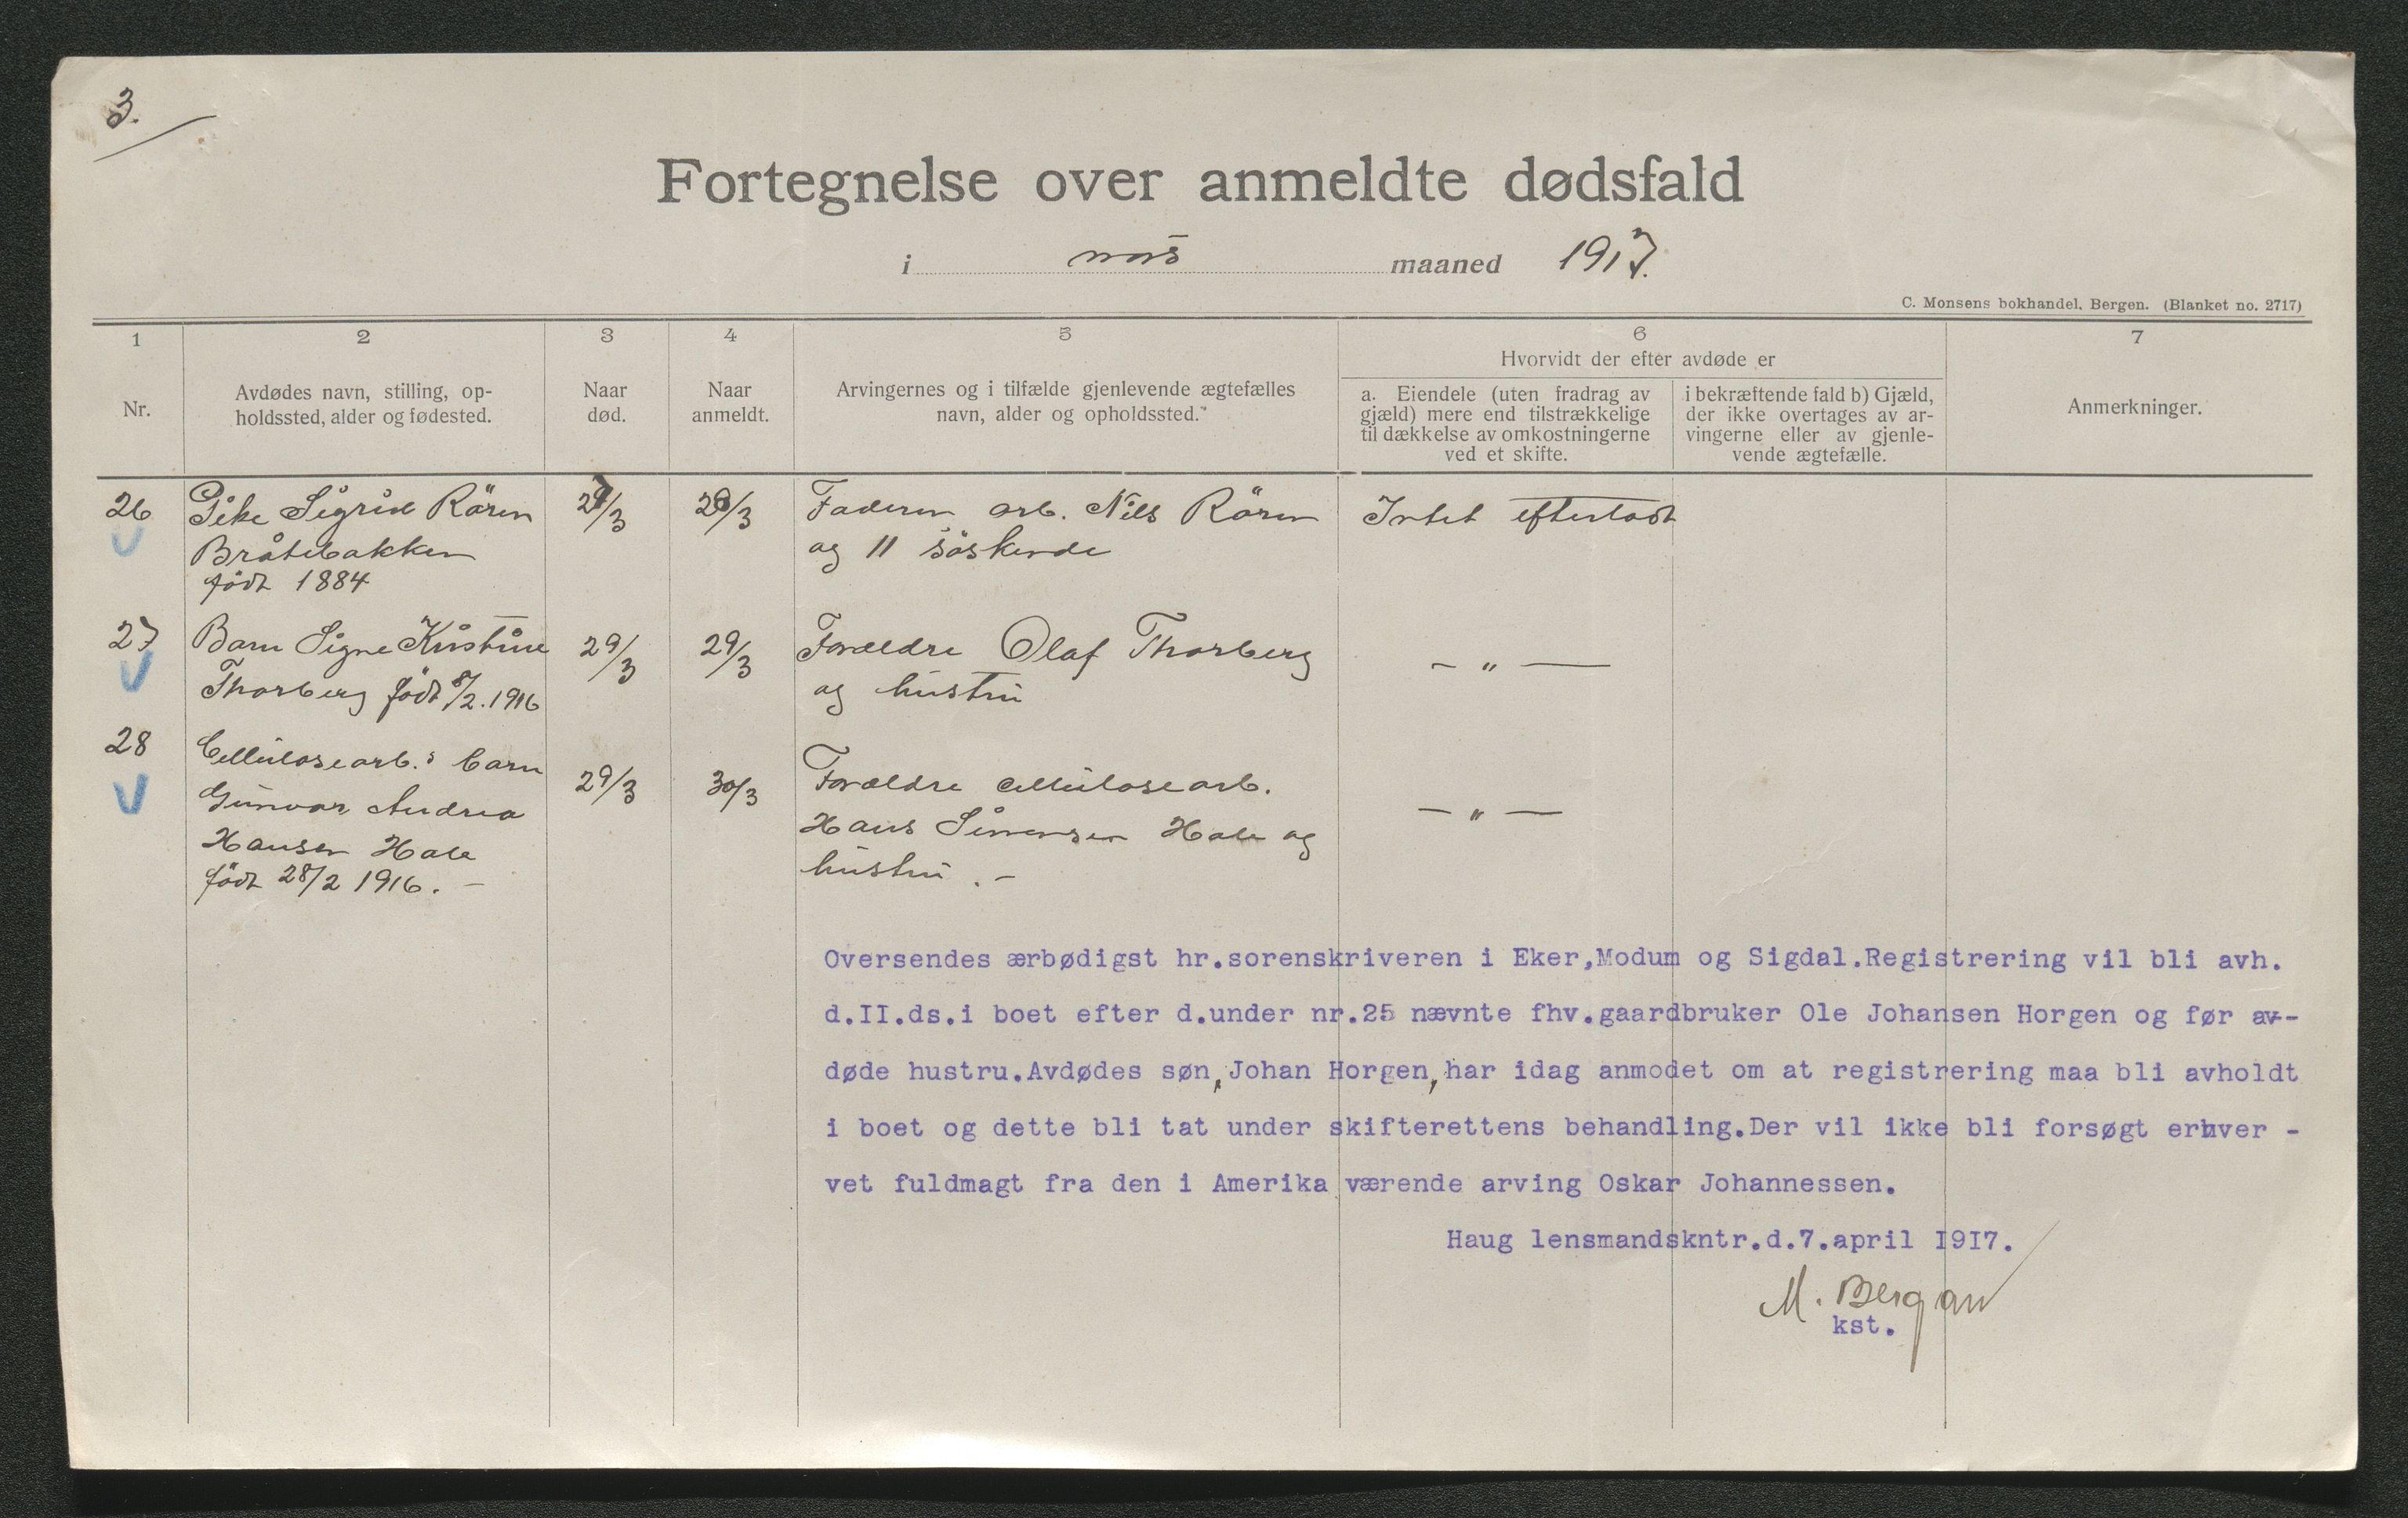 3.
Fortegnelse over anmeldte dødsfald
i mars maaned 1917.
C. Monsens bokhandel, Bergen. (Blanket no. 2717)
1
Nr.
2
Avdødes navn, stilling, op-
holdssted, alder og fødested.
3
Naar
død.
4
Naar
anmeldt.
5
Arvingernes og i tilfælde gjenlevende ægtefælles
navn, alder og opholdssted.
6
Hvorvidt der efter avdøde er
a. Eiendele (uten fradrag av
gjæld) mere end tilstrækkelige
til dækkelse av omkostningerne
ved et skifte.
i bekræftende fald b) Gjæld,
der ikke overtages av ar-
vingerne eller av gjenle-
vende ægtefælle.
7
Anmerkninger.
26
Pike Sigrid Rören
Bråtebakken
födt 1884
27/3
28/3
Faderen arb. Nils Rören
og 11 söskende
Intet efterladt
27
Barn Signe Kristine
Thorberg födt 8/2. 1916
29/3
29/3
Forældre Olaf Thorberg
og hustru
— „ —
28
Cellulosearb.s barn
Gunvor Andrea
Hansen Hole
födt 28/2 1916. –
29/3
30/3
Forældre cellulosearb.
Hans Simensen Hole og
hustru. –
— „ —
Oversendes ærbødigst hr.sorenskriveren i Eker,Modum og Sigdal.Registrering vil bli avh.
d.II.ds.i boet efter d.under nr.25 nævnte fhv.gaardbruker Ole Johansen Horgen og før av-
døde hustru.Avdødes søn,Johan Horgen,har idag anmodet om at registrering maa bli avholdt
i boet og dette bli tat under skifterettens behandling.Der vil ikke bli forsøgt erhver -
vet fuldmagt fra den i Amerika værende arving Oskar Johannessen.
Haug lensmandskntr.d.7.april I9I7.
M. Bergan
kst.